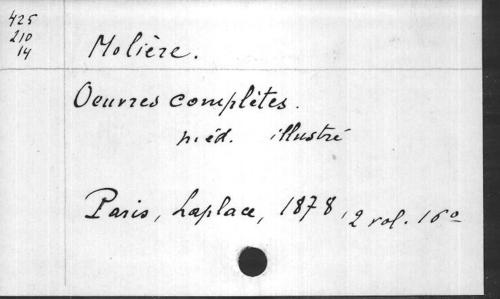 425
210
14
Molière.
Oeuvres complètes.
n. éd. illustré
Paris, Laplace, 1878, 2 vol. 16°